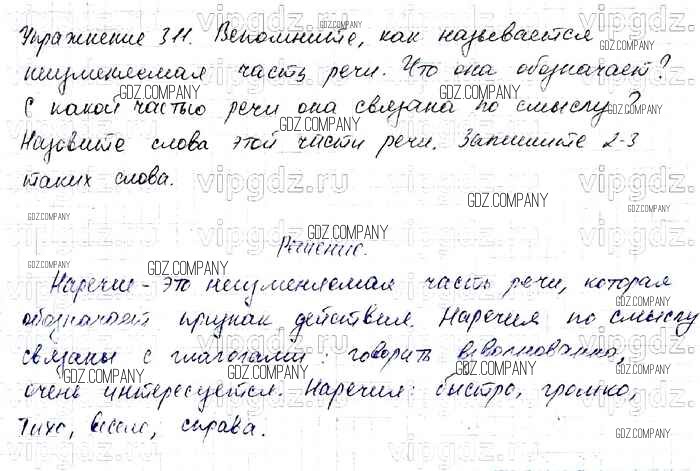 Упражнение 311. Вспомните, как называется
неизменяемая часть речи. Что она обозначает?
С какой частью речи она связана по смыслу?
Назовите слова этой части речи. Запишите 2-3
таких слова.
Решение.
Наречие - это неизменяемая часть речи, которая
обозначает признак действия. Наречия по смыслу
связаны с глаголами: говорить взволнованно,
очень интересуется. Наречия: быстро, громко,
тихо, весело, справа.